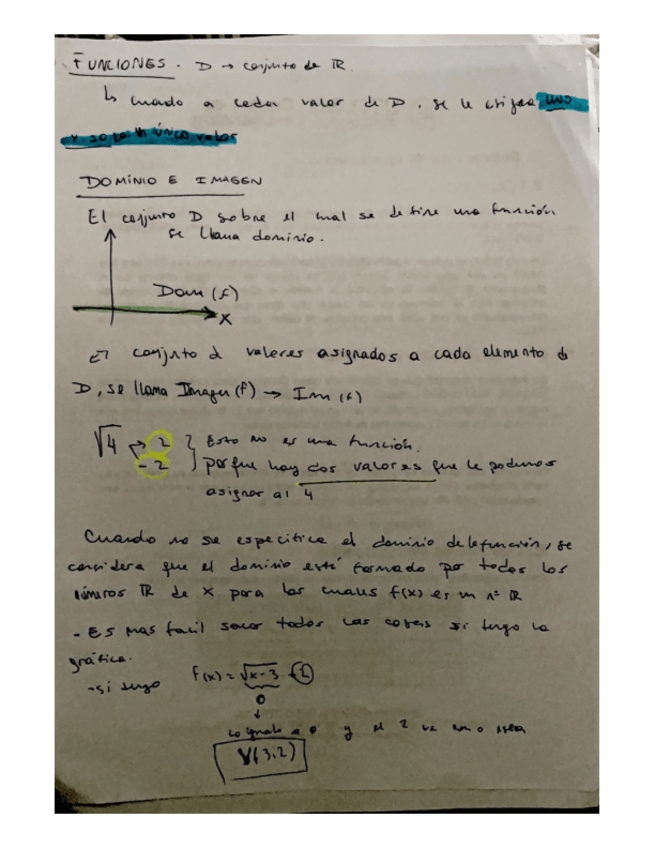 FUNCIONES. D → conjunto de ℝ.
↳ Cuando a cada valor de D, se le asigna uno
y solo un único valor
DOMINIO E IMAGEN
El conjunto D sobre el cual se define una función
se llama dominio.
Dom (f)
x
El conjunto d valores asignados a cada elemento d
D, se llama Imagen (f) → Im (f)
√4 → 2 } Esto no es una función.
-2 porque hay dos valores que le podemos
asignar al 4
Cuando no se especifica el dominio de la función, se
considera que el dominio está formado por todos los
números ℝ de x para los cuales f(x) es un nº ℝ
- Es mas facil sacar todas las cosas si tengo la
gráfica.
- si tengo f(x) = √x-3 2
0
↓
lo igualo a 0 y el 2 va como
V(3,2)